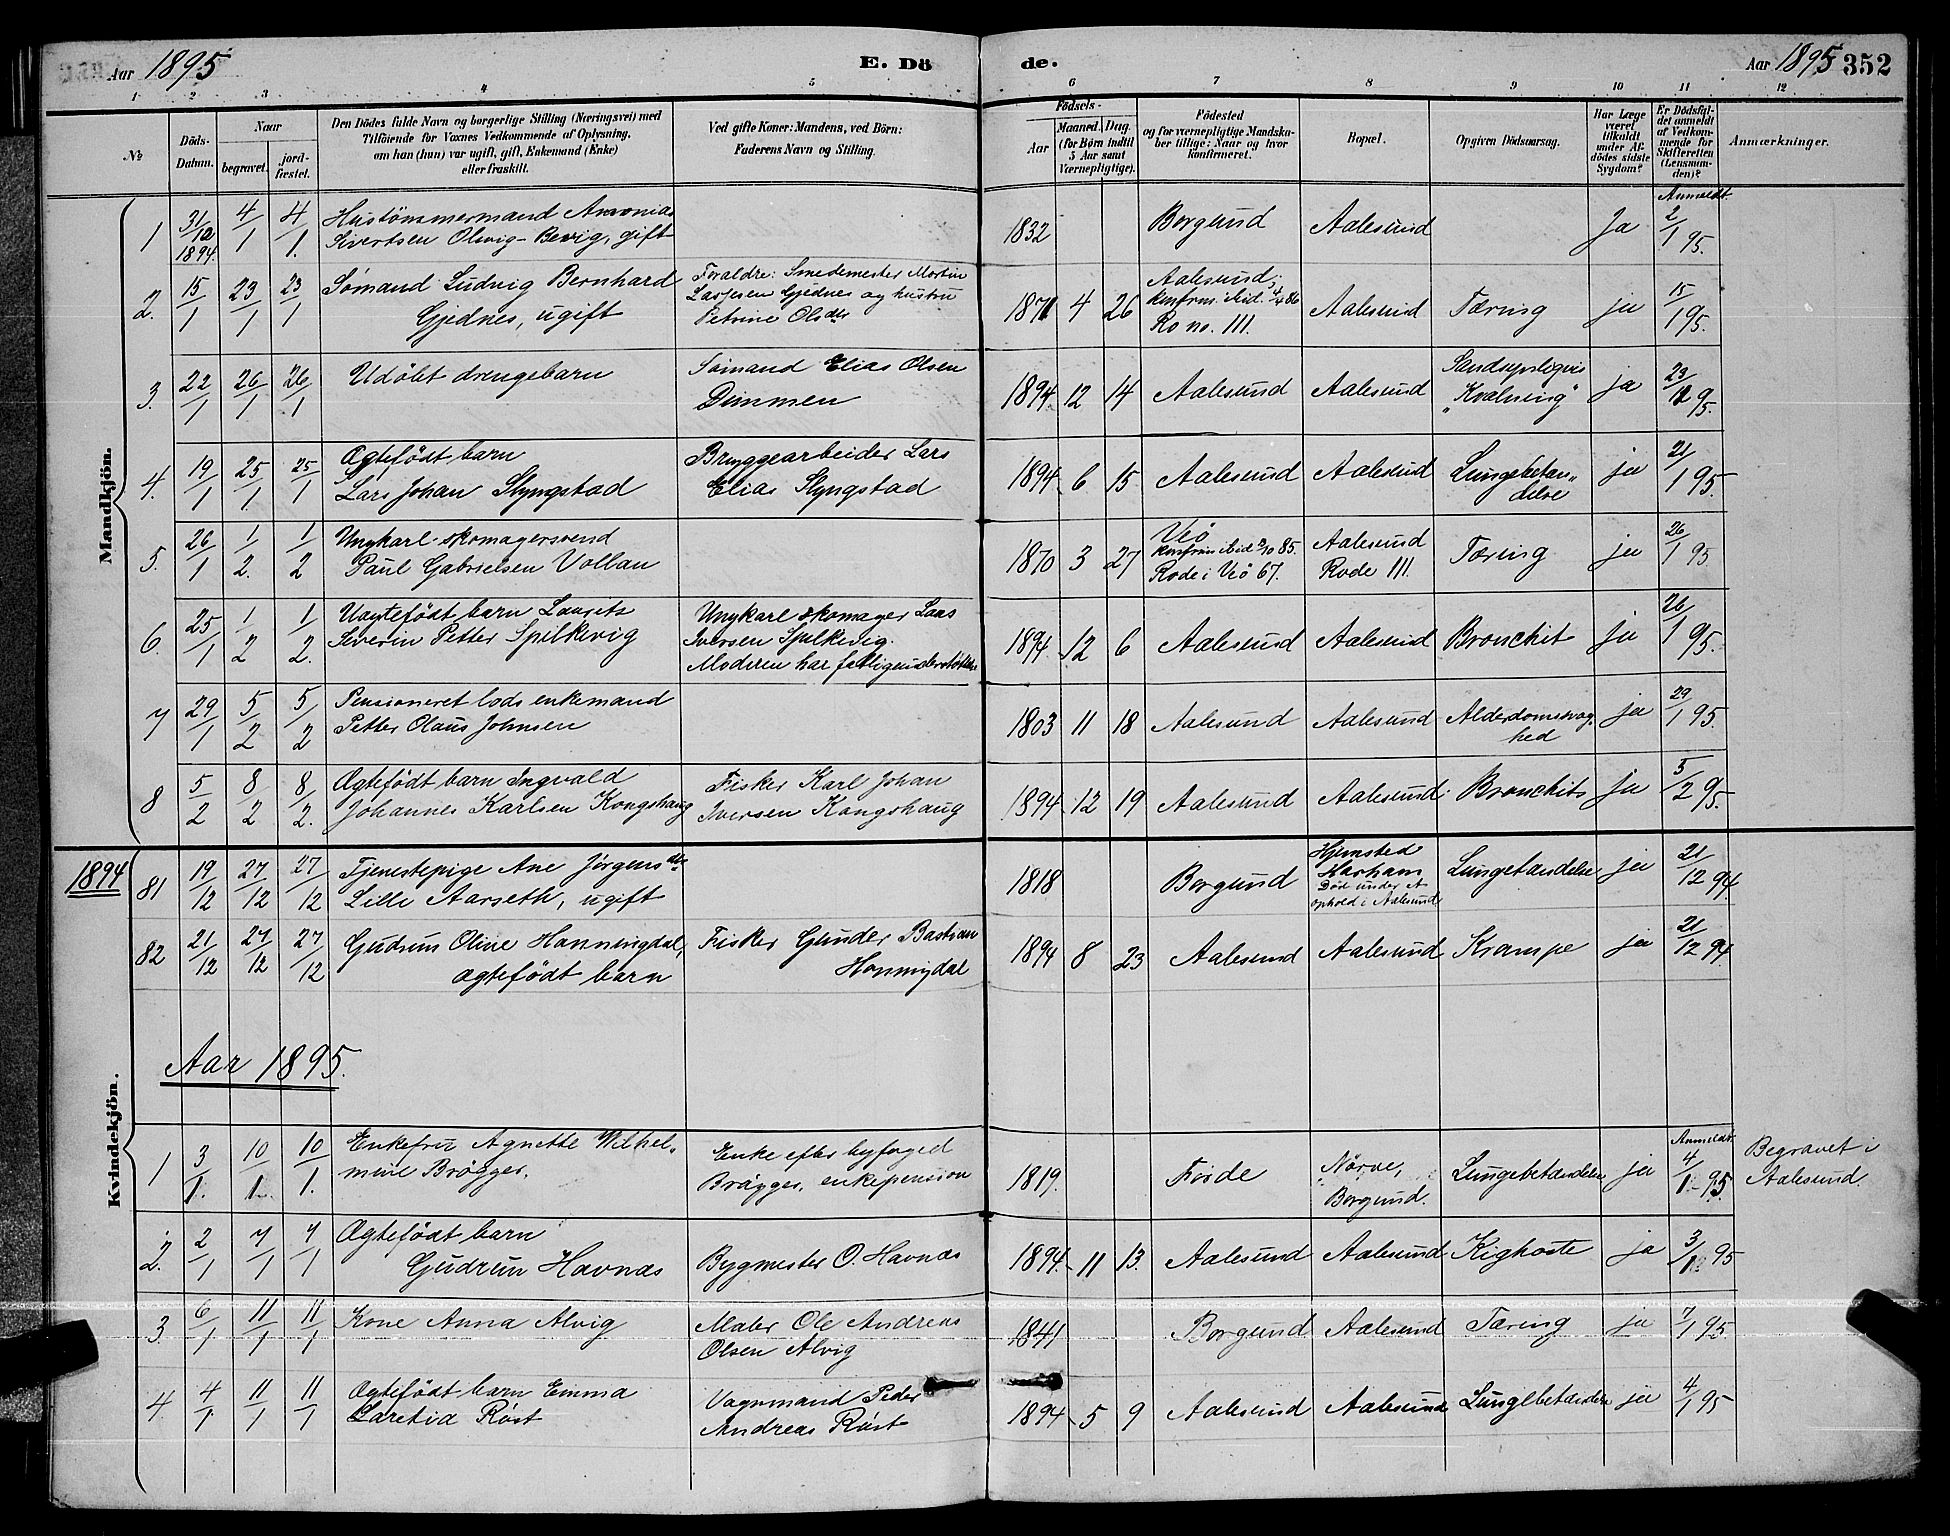 Aar 1895
E. Dö de.
Aar 1895 352
1 2 3 4 5 6 7 8 9 10 11 12
№
Döds-Datum.
Naar
begravet.
jord-fæstet.
Den Dödes fulde Navn og borgerlige Stilling (Næringsvei) med
Tilföiende for Voxnes Vedkommende af Oplysning,
om han (hun) var ugift, gift, Enkemand (Enke)
eller fraskilt.
Ved gifte Koner: Mandens, ved Börn:
Faderens Navn og Stilling.
Födsels-
Aar
Maaned. Dag.
(for Börn indtil
5 Aar samt
Værnepligtige).
Födested
og for værnepligtige Mandska-
ber tillige: Naar og hvor
konfirmeret.
Bopæl.
Opgiven Dödsaarsag.
Har Læge
været
tilkaldt
under Af-
dödes sidste
Sygdom?
Er Dödsfal-
det anmeldt
af Vedkom-
mende for
Skifteretten
(Lensman-
den)?
Anmærkninger.
Mandkjön.
1 31/12 1894 4/1 4/1.
Hustømmermand Ananias
Sivertsen Olsvig-Bevig, gift
1832 Borgund Aalesund Ja Anmeldt 2/1 95.
2. 15/1 23/1 23/1
Sømand Ludvig Bernhard
Gjednes, ugift
Foraldre: Smedemester Martin
Lassesen Gjednes og hustru
Petrine Olsdtr
1871 4 26
Aalesund;
konfirm. ibid. 4/4 86
Ro no. 111.
Aalesund Tæring ja 15/1 95.
3. 22/1 26/1 26/1
Udöbt drengebarn
Sömand Elias Olsen
Dimmen
1894 12 14 Aalesund Aalesund
„Kvælning"
ja 23/1 95.
4. 19/1 25/1 25/1
Ægtefödt barn
Lars Johan Slyngstad
Bryggearbeider Lars
Elias Slyngstad
1894 6 15 Aalesund Aalesund
Lungebetæn-
delse
ja 21/1 95.
5. 26/1 1/2. 1/2
Ungkarl skomagersvend
Paul Gabrielsen Vollan
1870 3 27
Veö
konfirm ibid 2/10 85.
Rode i Veö 67.
Aalesund
Rode 111.
Tæring ja 26/1 95.
6. 25/1 1/2 1/2.
Uægtefödt barn Laurits
Severin Petter Spilkevig
Ungkarl skomager Lars
Iversen Spilkevig.
Moderen har fattigunderstöttelse
1894 12 6 Aalesund Aalesund Bronchit ja 26/1 95.
7 29/1 5/2 5/2
Pensioneret lods enkemand
Petter Olaus Johnsen
1803 11 18 Aalesund Aalesund
Alderdomssvag-
hed
ja 29/1 95.
8 5/2 8/2 8/2.
Ægtefödt barn Ingvald
Johannes Karlsen Kongshaug
Fisker Karl Johan
Iversen Kongshaug
1894 12 19 Aalesund Aalesund. Bronchits ja 5/2 95.
1894
Kvindekjön.
81 19/12 27/12 27/12
Tjenestepige Ane Jörgensdtr
Lille Aarseth, ugift
1818 Borgund
Hjemsted
Harham
Död under et
ophold i Aalesund
Lungebetændelse ja 21/12 94.
82 21/12 27/12 27/12
Gudrun Oline Honningdal,
ægtefödt barn
Fisker Gunder Bastian
Honnigdal
1894 8 23 Aalesund Aalesund Krampe ja 21/12 94.
Aar 1895.
1 3/1. 10/1. 10/1.
Enkefru Agnette Wilhel-
mine Brögger.
Enke efter byfoged
Brögger, enkepension
1819. Förde
Nörve,
Borgund.
Lungebetændelse ja Anmeldt 4/1 95
Begravet i
Aalesund.
2. 2/1 7/1 7/1
Ægtefödt barn
Gudrun Havnæs
Bygmester O. Havnæs
1894 11 13. Aalesund Aalesund Kighoste ja 3/1 95
3. 6/1 11/1 11/1
Kone Anna Alvig
Maler Ole Andreas
Olsen Alvig
1841 Borgund Aalesund Tæring ja 7/1 95
4. 4/1. 11/1 11/1
Ægtefödt barn Emma
Laretia Röst
Vognmand Peder
Andreas Röst
1894 5 9 Aalesund Aalesund Lungebetændelse ja 4/1 95